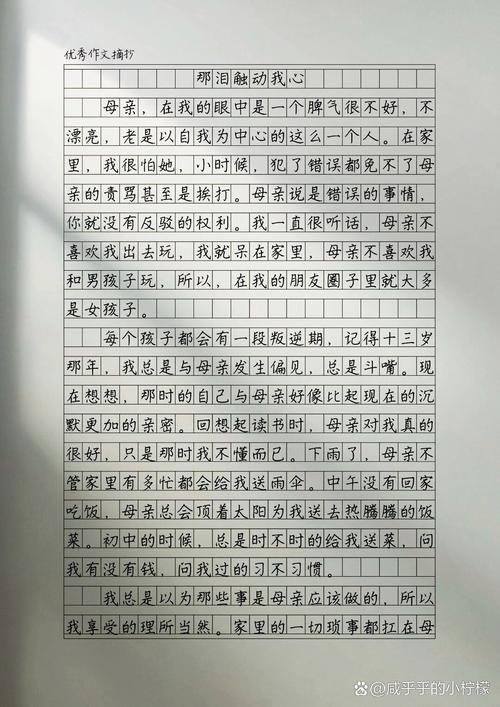 优秀作文摘抄
那泪触动我心
母亲，在我的眼中是一个脾气很不好，不
漂亮，老是以自我为中心的这么一个人。在家
里，我很怕她，小时候，犯了错误都免不了母
亲的责骂甚至是挨打。母亲说是错误的事情，
你就没有反驳的权利。我一直很听话，母亲不
喜欢我出去玩，我就呆在家里，母亲不喜欢我
和男孩子玩，所以，在我的朋友圈子里就大多
是女孩子。
每个孩子都会有一段叛逆期，记得十三岁
那年，我总是与母亲发生偏见，总是斗嘴。现
在想想，那时的自己与母亲好像比起现在的沉
默更加的亲密。回想起读书时，母亲对我真的
很好，只是那时我不懂而已。下雨了，母亲不
管家里有多忙都会给我送雨伞。中午没有回家
吃饭，母亲总会顶着太阳为我送去热腾腾的饭
菜。初中的时候，总是时不时的给我送菜，问
我有没有钱，问我过的习不习惯。
我总是以为那些事是母亲应该做的，所以
我享受的理所当然。家里的一切琐事都扛在母
@咸乎乎的小柠檬